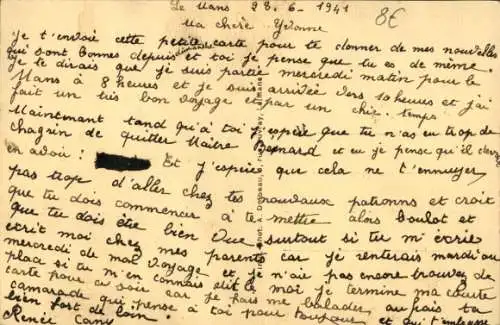 Le Mans 28-6-1941
8€
Ma chère Yvonne
Je t'envoie cette petite carte pour te donner de mes nouvelles
qui sont bonnes depuis et toi je pense que tu es de même.
Je te dirais que je suis partie mercredi matin pour le
Mans à 8 heures et je suis arrivée vers 10 heures et j'ai
fait un très bon voyage et par un chic temps
Maintenant tand qu'à toi j'espère que tu n'as eu trop de
chagrin de quitter Maître Bernard et eu je pense qu'il
en avoir! Et j'espère que cela ne t'ennuyer
pas trop d'aller chez tes nouveaux patrons et croit
que tu dois commencer à te mettre alors boulot et
que tu dois être bien vue surtout si tu m'écrie
écrit moi chez mes parents car je rentrerais mardi ou
mercredi de mon voyage et je n'aie pas encore trouvez de
place si tu m'en connais moi je termine ma courte
carte pour ce soir car je vais me balader au pais ta
camarade qui pense à toi pour toujours et qui t'embrasse
bien fort de loin
Renée